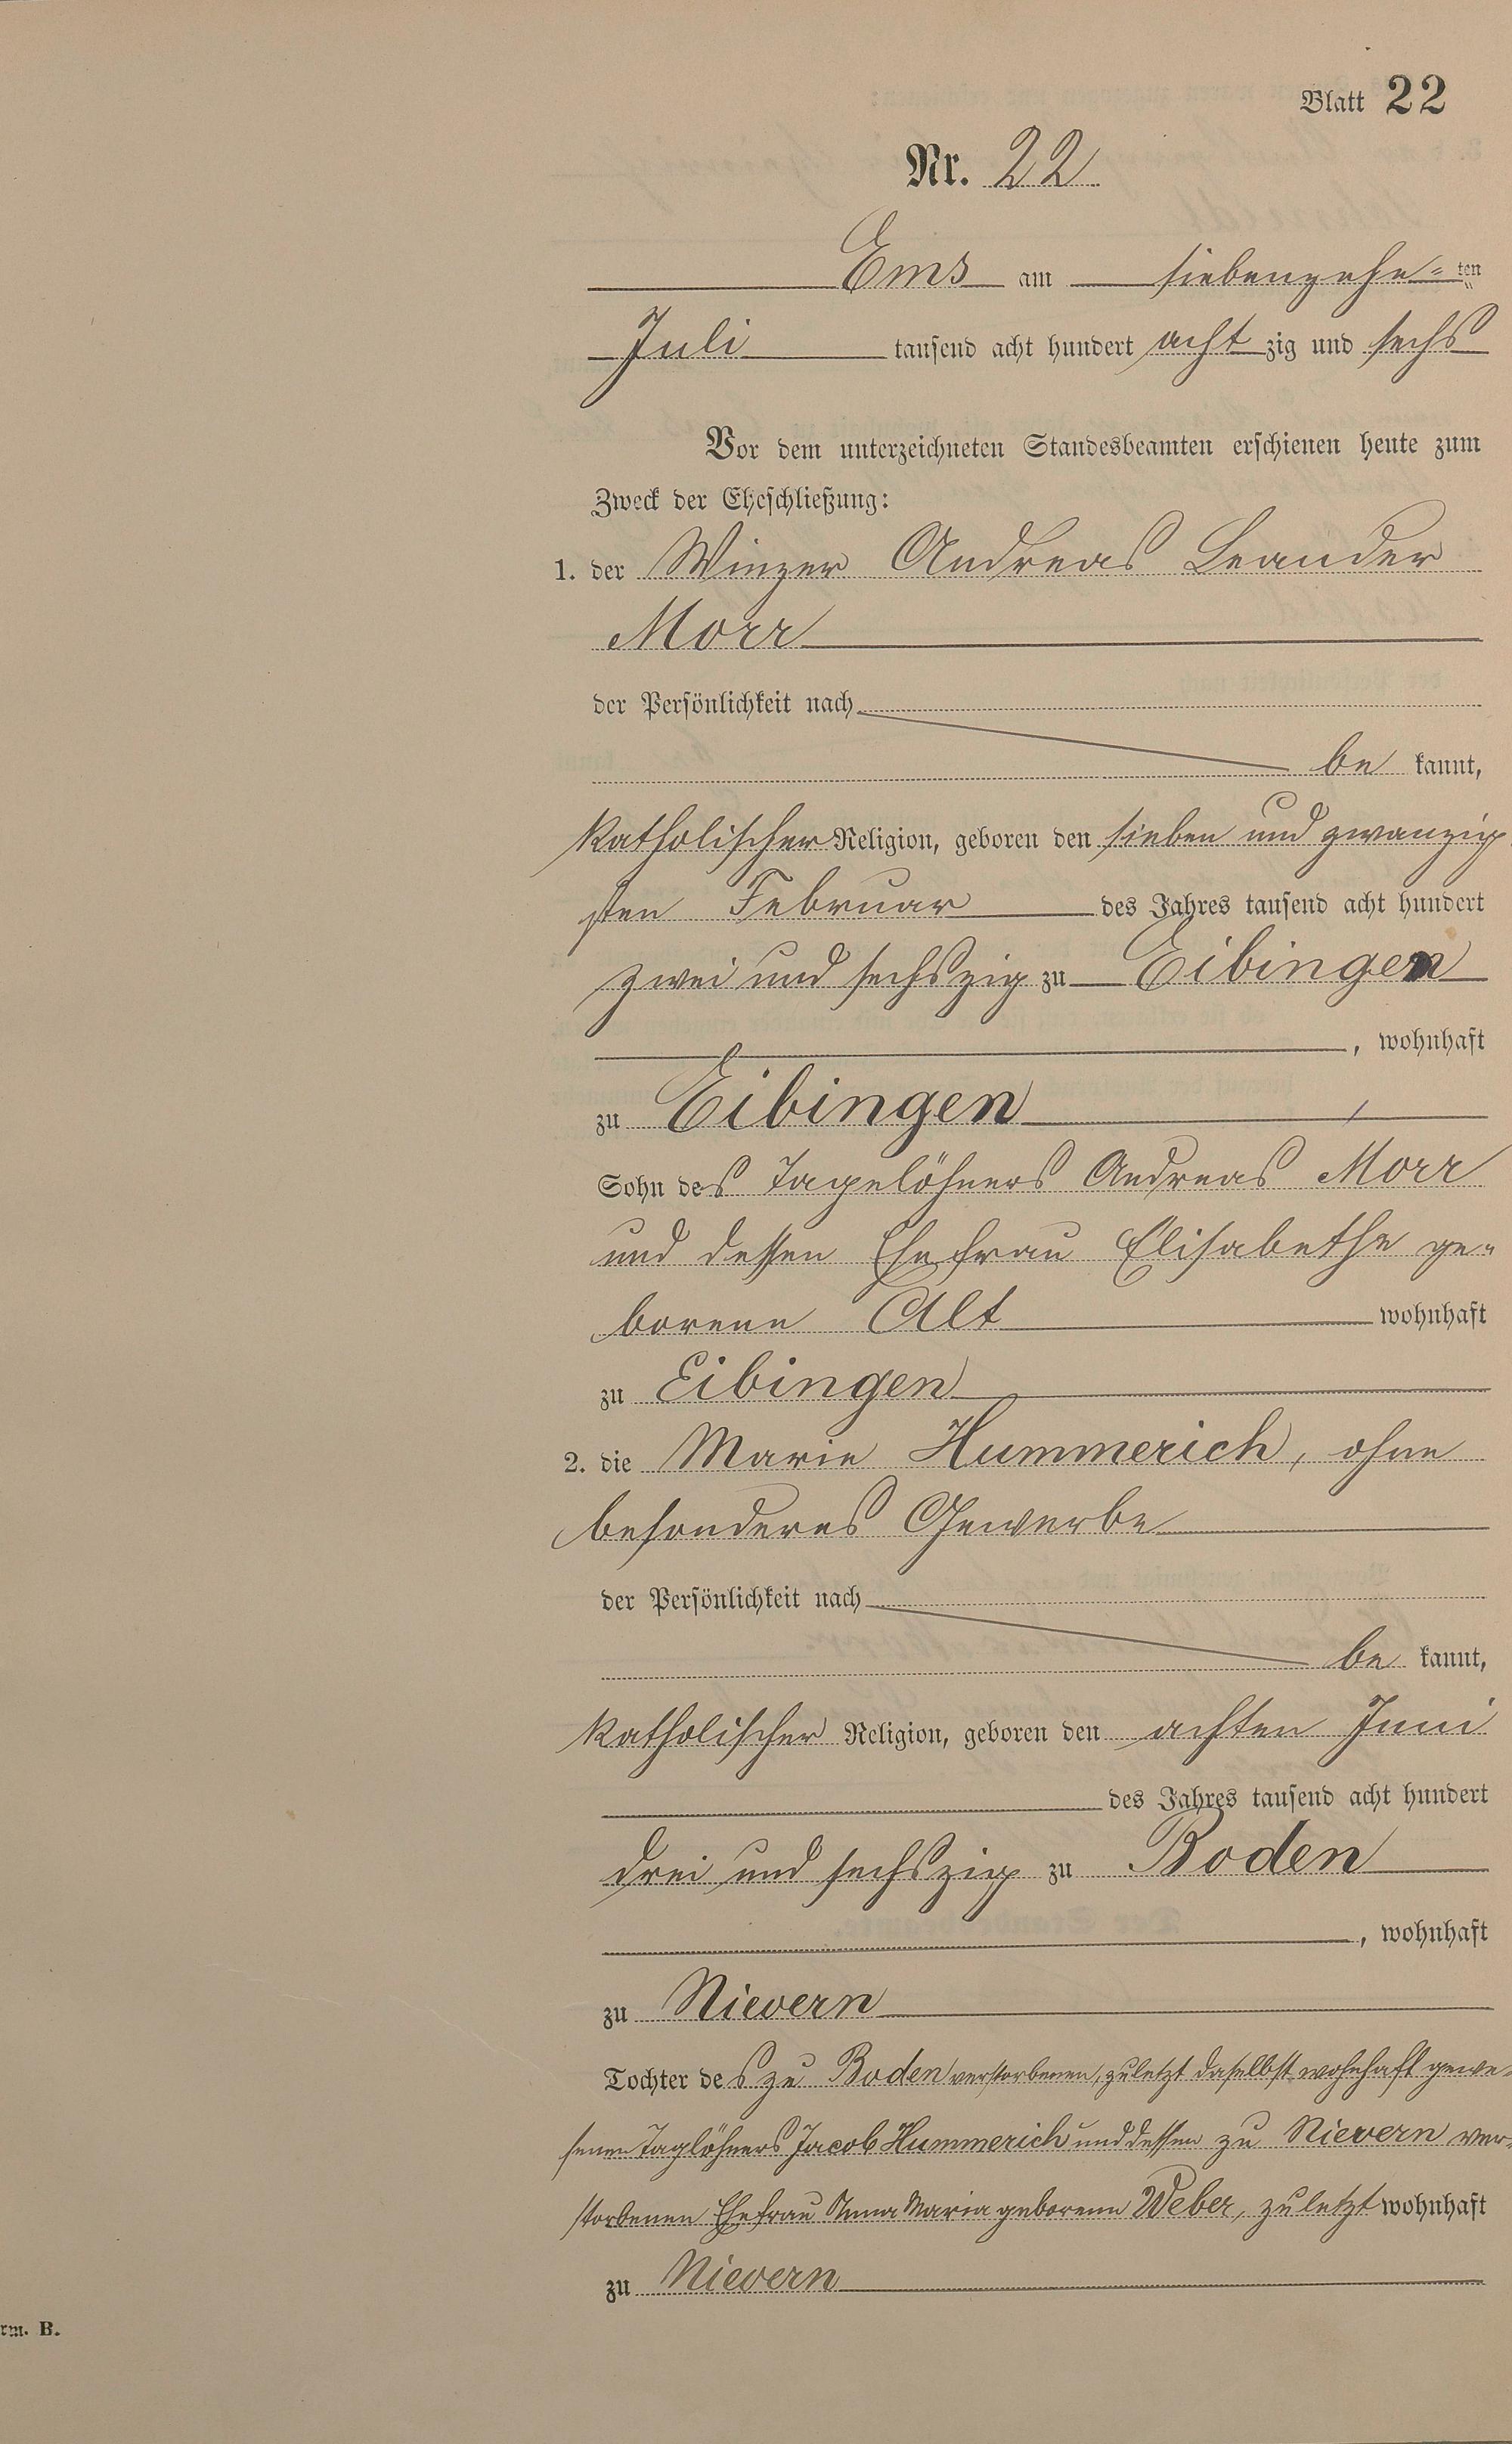 Blatt 22
Nr. 22
Ems am siebenzehn=ten
Juli tausend acht hundert acht zig und sechs
Vor dem unterzeichneten Standesbeamten erschienen heute zum
Zweck der Eheschließung:
1. der Winzer Andreas Leander
Morr
der Persönlichkeit nach
be kannt,
katholischer Religion, geboren den sieben und zwanzig
sten Februar des Jahres tausend acht hundert
zwei und sechszig zu Eibingen
, wohnhaft
zu Eibingen
Sohn des Tagelöhners Andreas Morr
und dessen Ehefrau Elisabethe ge-
borene Alt wohnhaft
zu Eibingen
2. die Marie Hummerich, ohne
besonderes Gewerbe
der Persönlichkeit nach
be kannt,
katholischer Religion, geboren den achten Juni
des Jahres tausend acht hundert
drei und sechszig zu Boden
, wohnhaft
zu Nievern
Tochter des zu Boden verstorbenen, zuletzt daselbst wohnhaft gewe-
senen Taglöhners Jacob Hummerich und dessen zu Nievern ver-
storbenen Ehefrau Anna Maria geborene Weber, zuletzt wohnhaft
zu Nievern
rm. B.